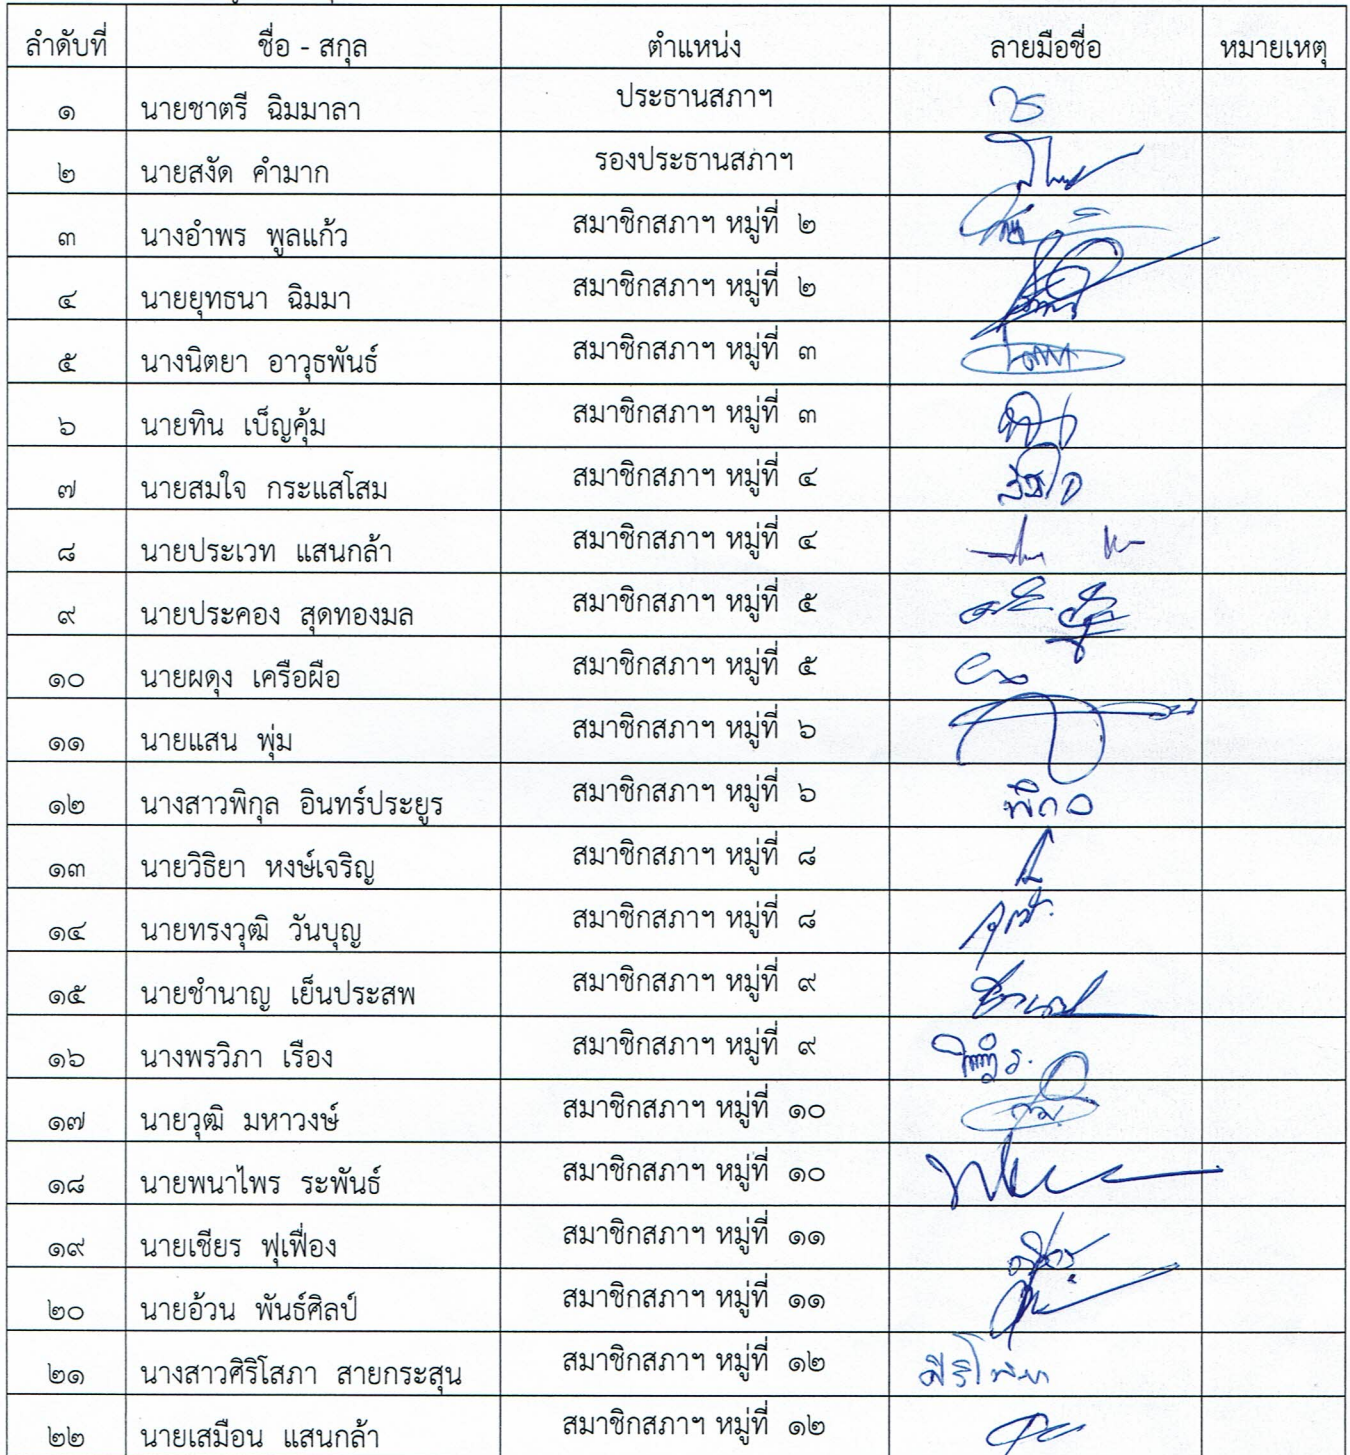 ลำดับที่ ชื่อ - สกุล ตำแหน่ง ลายมือชื่อ หมายเหตุ
๑ นายชาตรี ฉิมมาลา ประธานสภาฯ
๒ นายสงัด คำมาก รองประธานสภาฯ
๓ นางอำพร พูลแก้ว สมาชิกสภาฯ หมู่ที่ ๒
๔ นายยุทธนา ฉิมมา สมาชิกสภาฯ หมู่ที่ ๒
๕ นางนิตยา อาวุธพันธ์ สมาชิกสภาฯ หมู่ที่ ๓
๖ นายทิน เบ็ญคุ้ม สมาชิกสภาฯ หมู่ที่ ๓
๗ นายสมใจ กระแสโสม สมาชิกสภาฯ หมู่ที่ ๔
๘ นายประเวท แสนกล้า สมาชิกสภาฯ หมู่ที่ ๔
๙ นายประคอง สุดทองมล สมาชิกสภาฯ หมู่ที่ ๕
๑๐ นายผดุง เครือผือ สมาชิกสภาฯ หมู่ที่ ๕
๑๑ นายแสน พุ่ม สมาชิกสภาฯ หมู่ที่ ๖
๑๒ นางสาวพิกุล อินทร์ประยูร สมาชิกสภาฯ หมู่ที่ ๖
๑๓ นายวิธิยา หงษ์เจริญ สมาชิกสภาฯ หมู่ที่ ๘
๑๔ นายทรงวุฒิ วันบุญ สมาชิกสภาฯ หมู่ที่ ๘
๑๕ นายชำนาญ เย็นประสพ สมาชิกสภาฯ หมู่ที่ ๙
๑๖ นางพรวิภา เรือง สมาชิกสภาฯ หมู่ที่ ๙
๑๗ นายวุฒิ มหาวงษ์ สมาชิกสภาฯ หมู่ที่ ๑๐
๑๘ นายพนาไพร ระพันธ์ สมาชิกสภาฯ หมู่ที่ ๑๐
๑๙ นายเชียร ฟุเฟื่อง สมาชิกสภาฯ หมู่ที่ ๑๑
๒๐ นายอ้วน พันธ์ศิลป์ สมาชิกสภาฯ หมู่ที่ ๑๑
๒๑ นางสาวศิริโสภา สายกระสุน สมาชิกสภาฯ หมู่ที่ ๑๒
๒๒ นายเสมือน แสนกล้า สมาชิกสภาฯ หมู่ที่ ๑๒